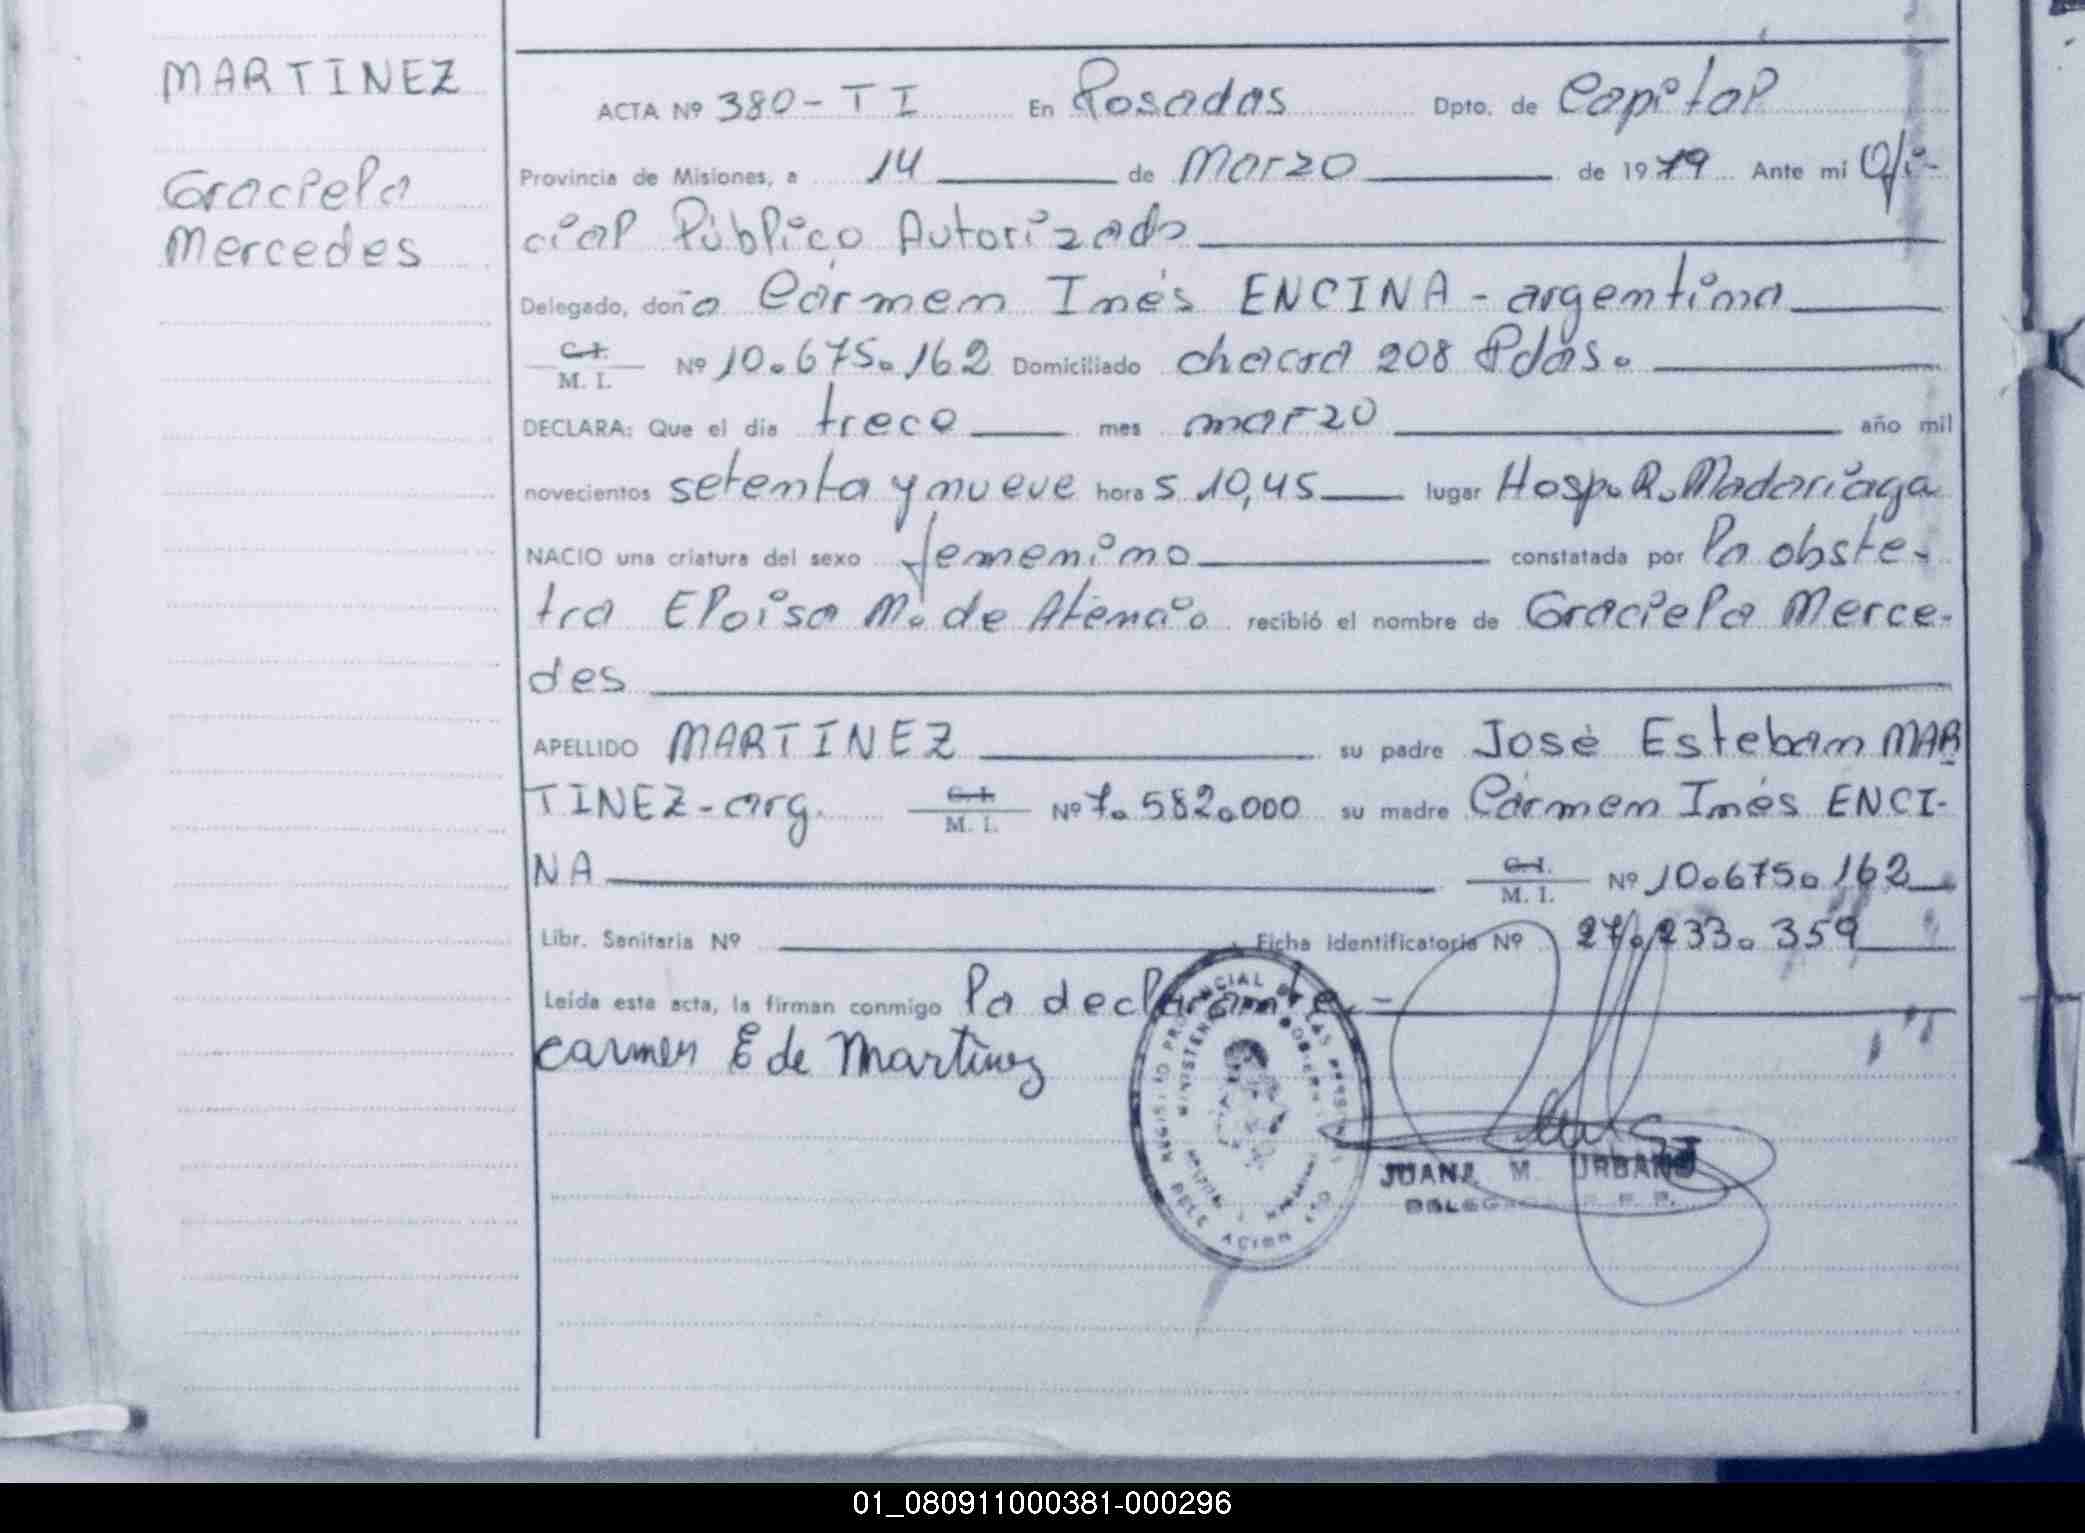 MARTINEZ
Graciela
Mercedes
ACTA Nº 380-TI En Posadas Dpto. de Capital
Provincia de Misiones, a 14 de Marzo de 1979 Ante mi Ofi-
cial Público Autorizado
Delegado, doña Cármen Inés ENCINA - argentina
C.I. M. I. Nº 10.675.162 Domiciliado chacra 208 Pdas.
DECLARA: Que el dia trece mes marzo año mil
novecientos setenta y nueve horas 10,45 lugar Hosp. R. Madariaga
NACIO una criatura del sexo femenino constatada por la obste-
tra Eloisa M. de Atencio recibió el nombre de Graciela Merce-
des
APELLIDO MARTINEZ su padre José Esteban MAR
TINEZ - arg. C.I. M. I. Nº 7.582.000 su madre Cármen Inés ENCI-
NA C.I. M. I. Nº 10.675.162
Libr. Sanitaria Nº Ficha Identificatoria Nº 27.233.359
Leída este acta, la firman conmigo la declarante.-
Carmen E de Martinez
REGISTRO PROVINCIAL DE LAS PERSONAS
MINISTERIO DE GOBIERNO
DELEGACION
JUANA M. URBANO
01_080911000381-000296